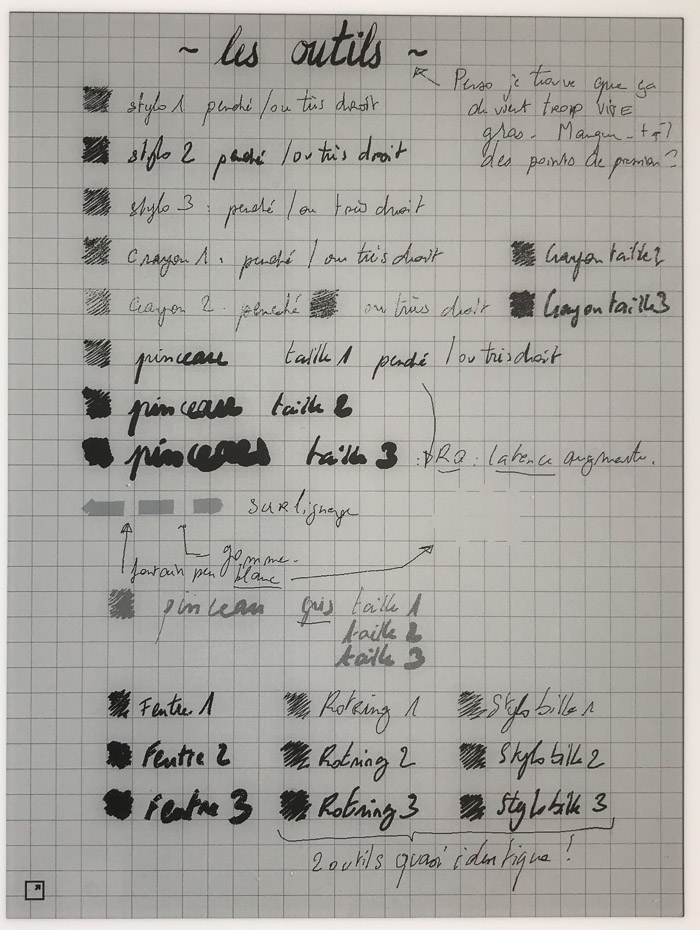 ~ les outils ~
Perso je trouve que ça
devient TROP VITE
gras. Manque-t-il
des points de pression ?
stylo 1 penché / ou très droit
stylo 2 penché / ou très droit
stylo 3 : penché / ou très droit
Crayon 1 : penché / ou très droit
Crayon taille 2
Crayon 2 penché ou très droit
Crayon taille 3
pinceau taille 1 penché / ou très droit
pinceau taille 2
pinceau taille 3 : RQ : latence augmente.
SURlignage
gomme.
pen blanc
pinceau gris taille 1
taille 2
taille 3
Feutre 1 Rotring 1 Stylo bille 1
Feutre 2 Rotring 2 Stylo bille 2
Feutre 3 Rotring 3 Stylo bille 3
2 outils quasi identique !